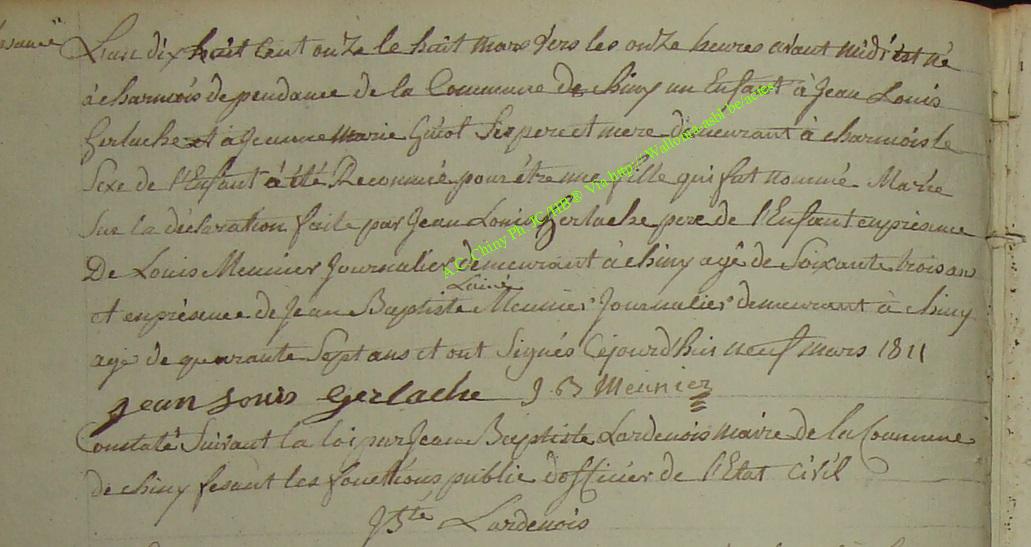 L'an dix huit cent onze le huit mars vers les onze heures avant midi est né
à charmois dependance de la Commune de chiny un Enfant à Jean Louis
Gerlache et a Jeanne Marie Guiot Ses pere et mere demeurant à charmois le
Sexe de l'Enfant à été Reconnue pour être une fille qui fut nommé Marie
Sur la déclaration faite par Jean Louis Gerlache pere de l'Enfant en présence
De Louis Meunier Journalier demeurant à chiny agé de Soixante trois an
Lainé
et en présence de Jean Baptiste Meunier Journalier demeurant à chiny
agé de quarante Sept ans et ont Signés Cejourd'hui neuf mars 1811
Jean Louis Gerlache J B Meunier
Constaté Suivant la loi par Jean Baptiste Lardenois maire de la Commune
de chiny fesant les fonctions public d'officier de l'Etat Civil
J Bte Lardenois
A.C. Chiny Ph JC/HB® Via http://Wallonia-asbl-be/actes